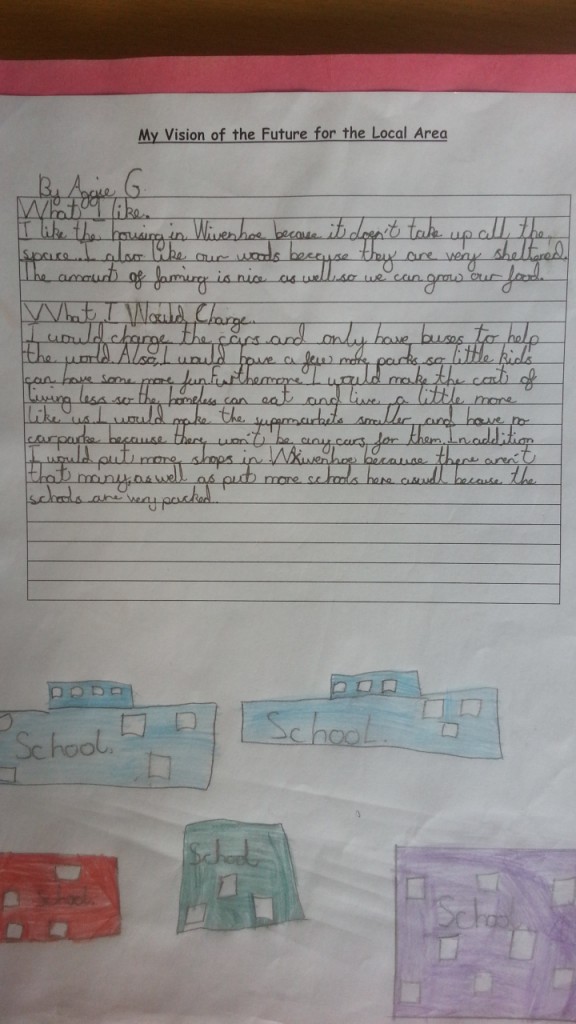 My Vision of the Future for the Local Area
By Aggie G.
What I like.
I like the housing in Wivenhoe because it doesn't take up all the
space. I also like our woods because they are very sheltered.
The amount of farming is nice as well so we can grow our food.
What I Would Change.
I would change the cars and only have buses to help
the world. Also, I would have a few more parks so little kids
can have some more fun. Furthermore I would make the cost of
living less so the homeless can eat and live a little more
like us. I would make the supermarkets smaller and have no
carparks because there won't be any cars for them. In addition
I would put more shops in Wivenhoe because there aren't
that many, as well as put more schools here aswell because the
schools are very packed.
School.
School.
School.
School
School